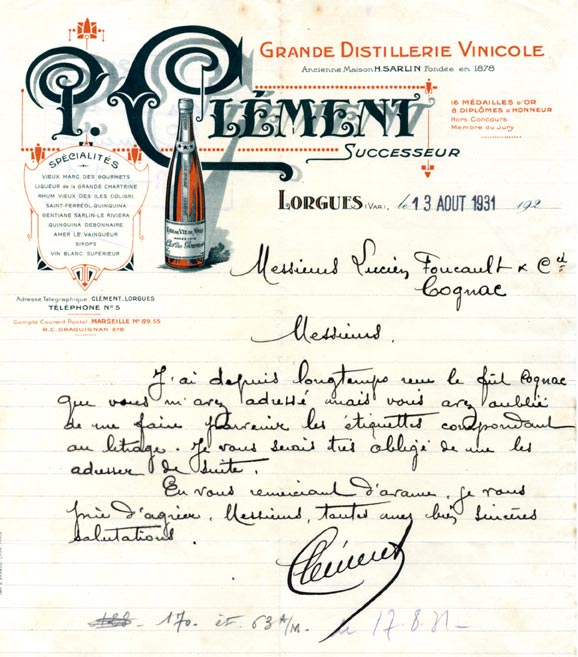 GRANDE DISTILLERIE VINICOLE
Ancienne Maison H. SARLIN Fondée en 1878
P. CLÉMENT
SUCCESSEUR
16 MÉDAILLES D'OR
8 DIPLÔMES D'HONNEUR
Hors Concours
Membre du Jury
SPÉCIALITÉS
VIEUX MARC DES GOURMETS
LIQUEUR de la GRANDE CHARTRINE
RHUM VIEUX DES (LES COLIBRI)
SAINT-FERRÉOL-QUINQUINA
GENTIANE SARLIN-LE RIVIERA
QUINQUINA DEBONNAIRE
AMER LE VAINQUEUR
SIROPS
VIN BLANC SUPÉRIEUR
LORGUES (VAR), le 13 AOUT 1931 192
Adresse Télégraphique CLÉMENT-LORGUES
TÉLÉPHONE N° 5
Compte Courant Postal MARSEILLE N° 129.55
R.C. DRAGUIGNAN 276
Messieurs Lucien Foucault & Cie
Cognac
Messieurs,
J'ai depuis longtemps reçu le fût Cognac
que vous m'avez adressé mais vous avez oublié
de me faire parvenir les étiquettes correspondant
au litrage. Je vous serais très obligé de me les
adresser de suite.
En vous remerciant d'avance, je vous
prie d'agréer, Messieurs, toutes mes bien sincères
salutations.
Clément
170 et 63 le 17.8.31